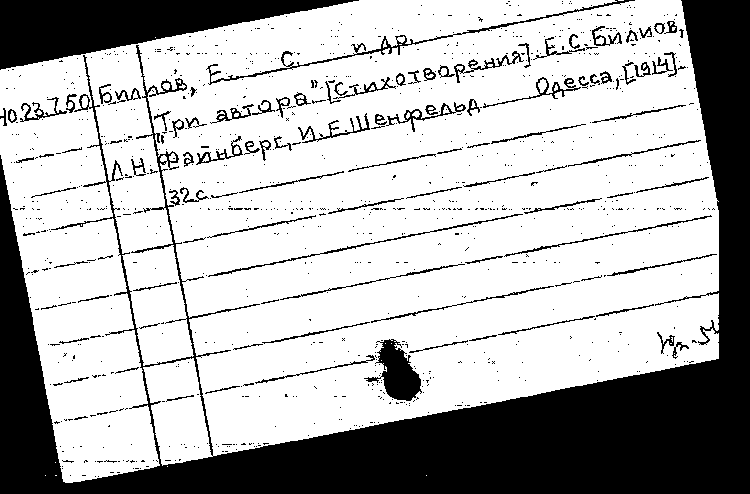 10.23.7.50 Билиов, Е. С. и др.
"Три автора". [Стихотворения]. Е.С. Билиов,
Л.Н. Файнберг, И.Е. Шенфельд. Одесса, [1914].
32 с.